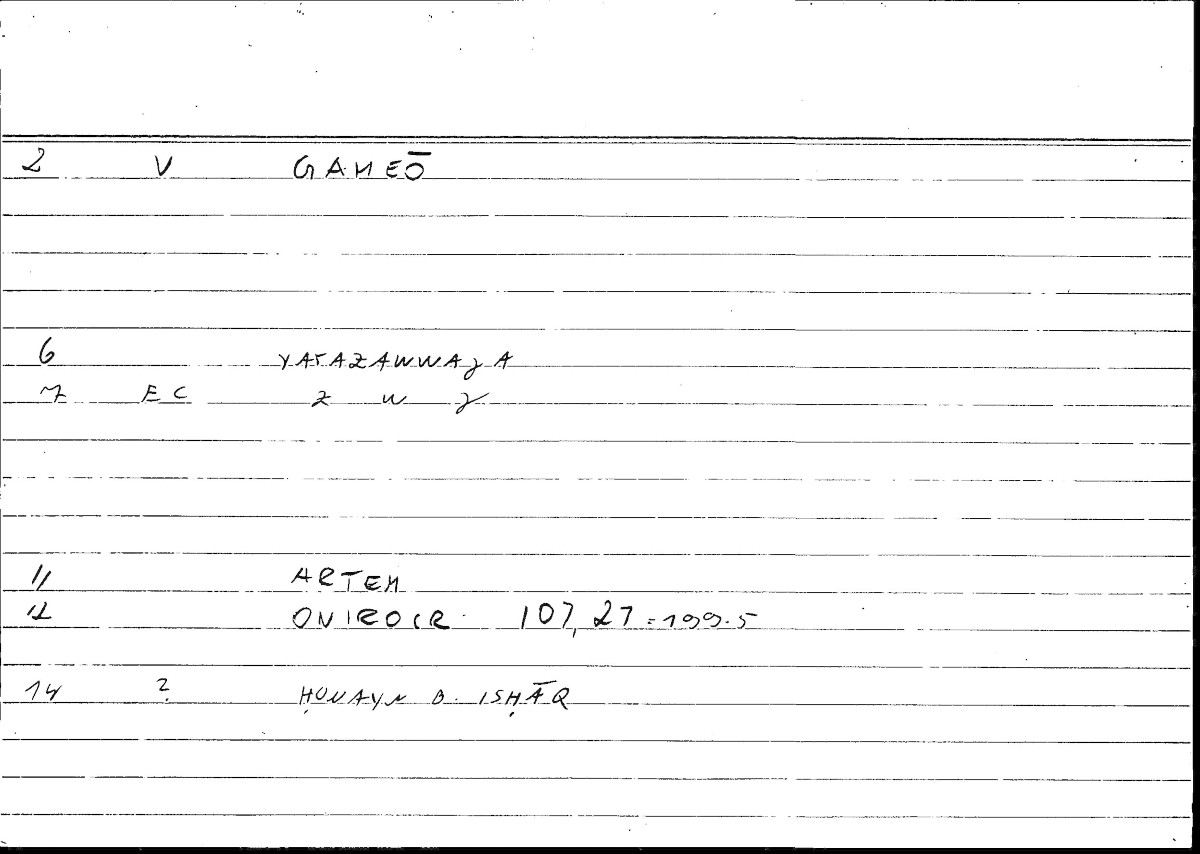 2 V GAMEŌ
6 YATAZAWWAJA
7 EC Z W J
11 ARTEM
12 ONIROCR 107,27 = 199.5
14 ? ḤUNAYN B. ISḤĀQ